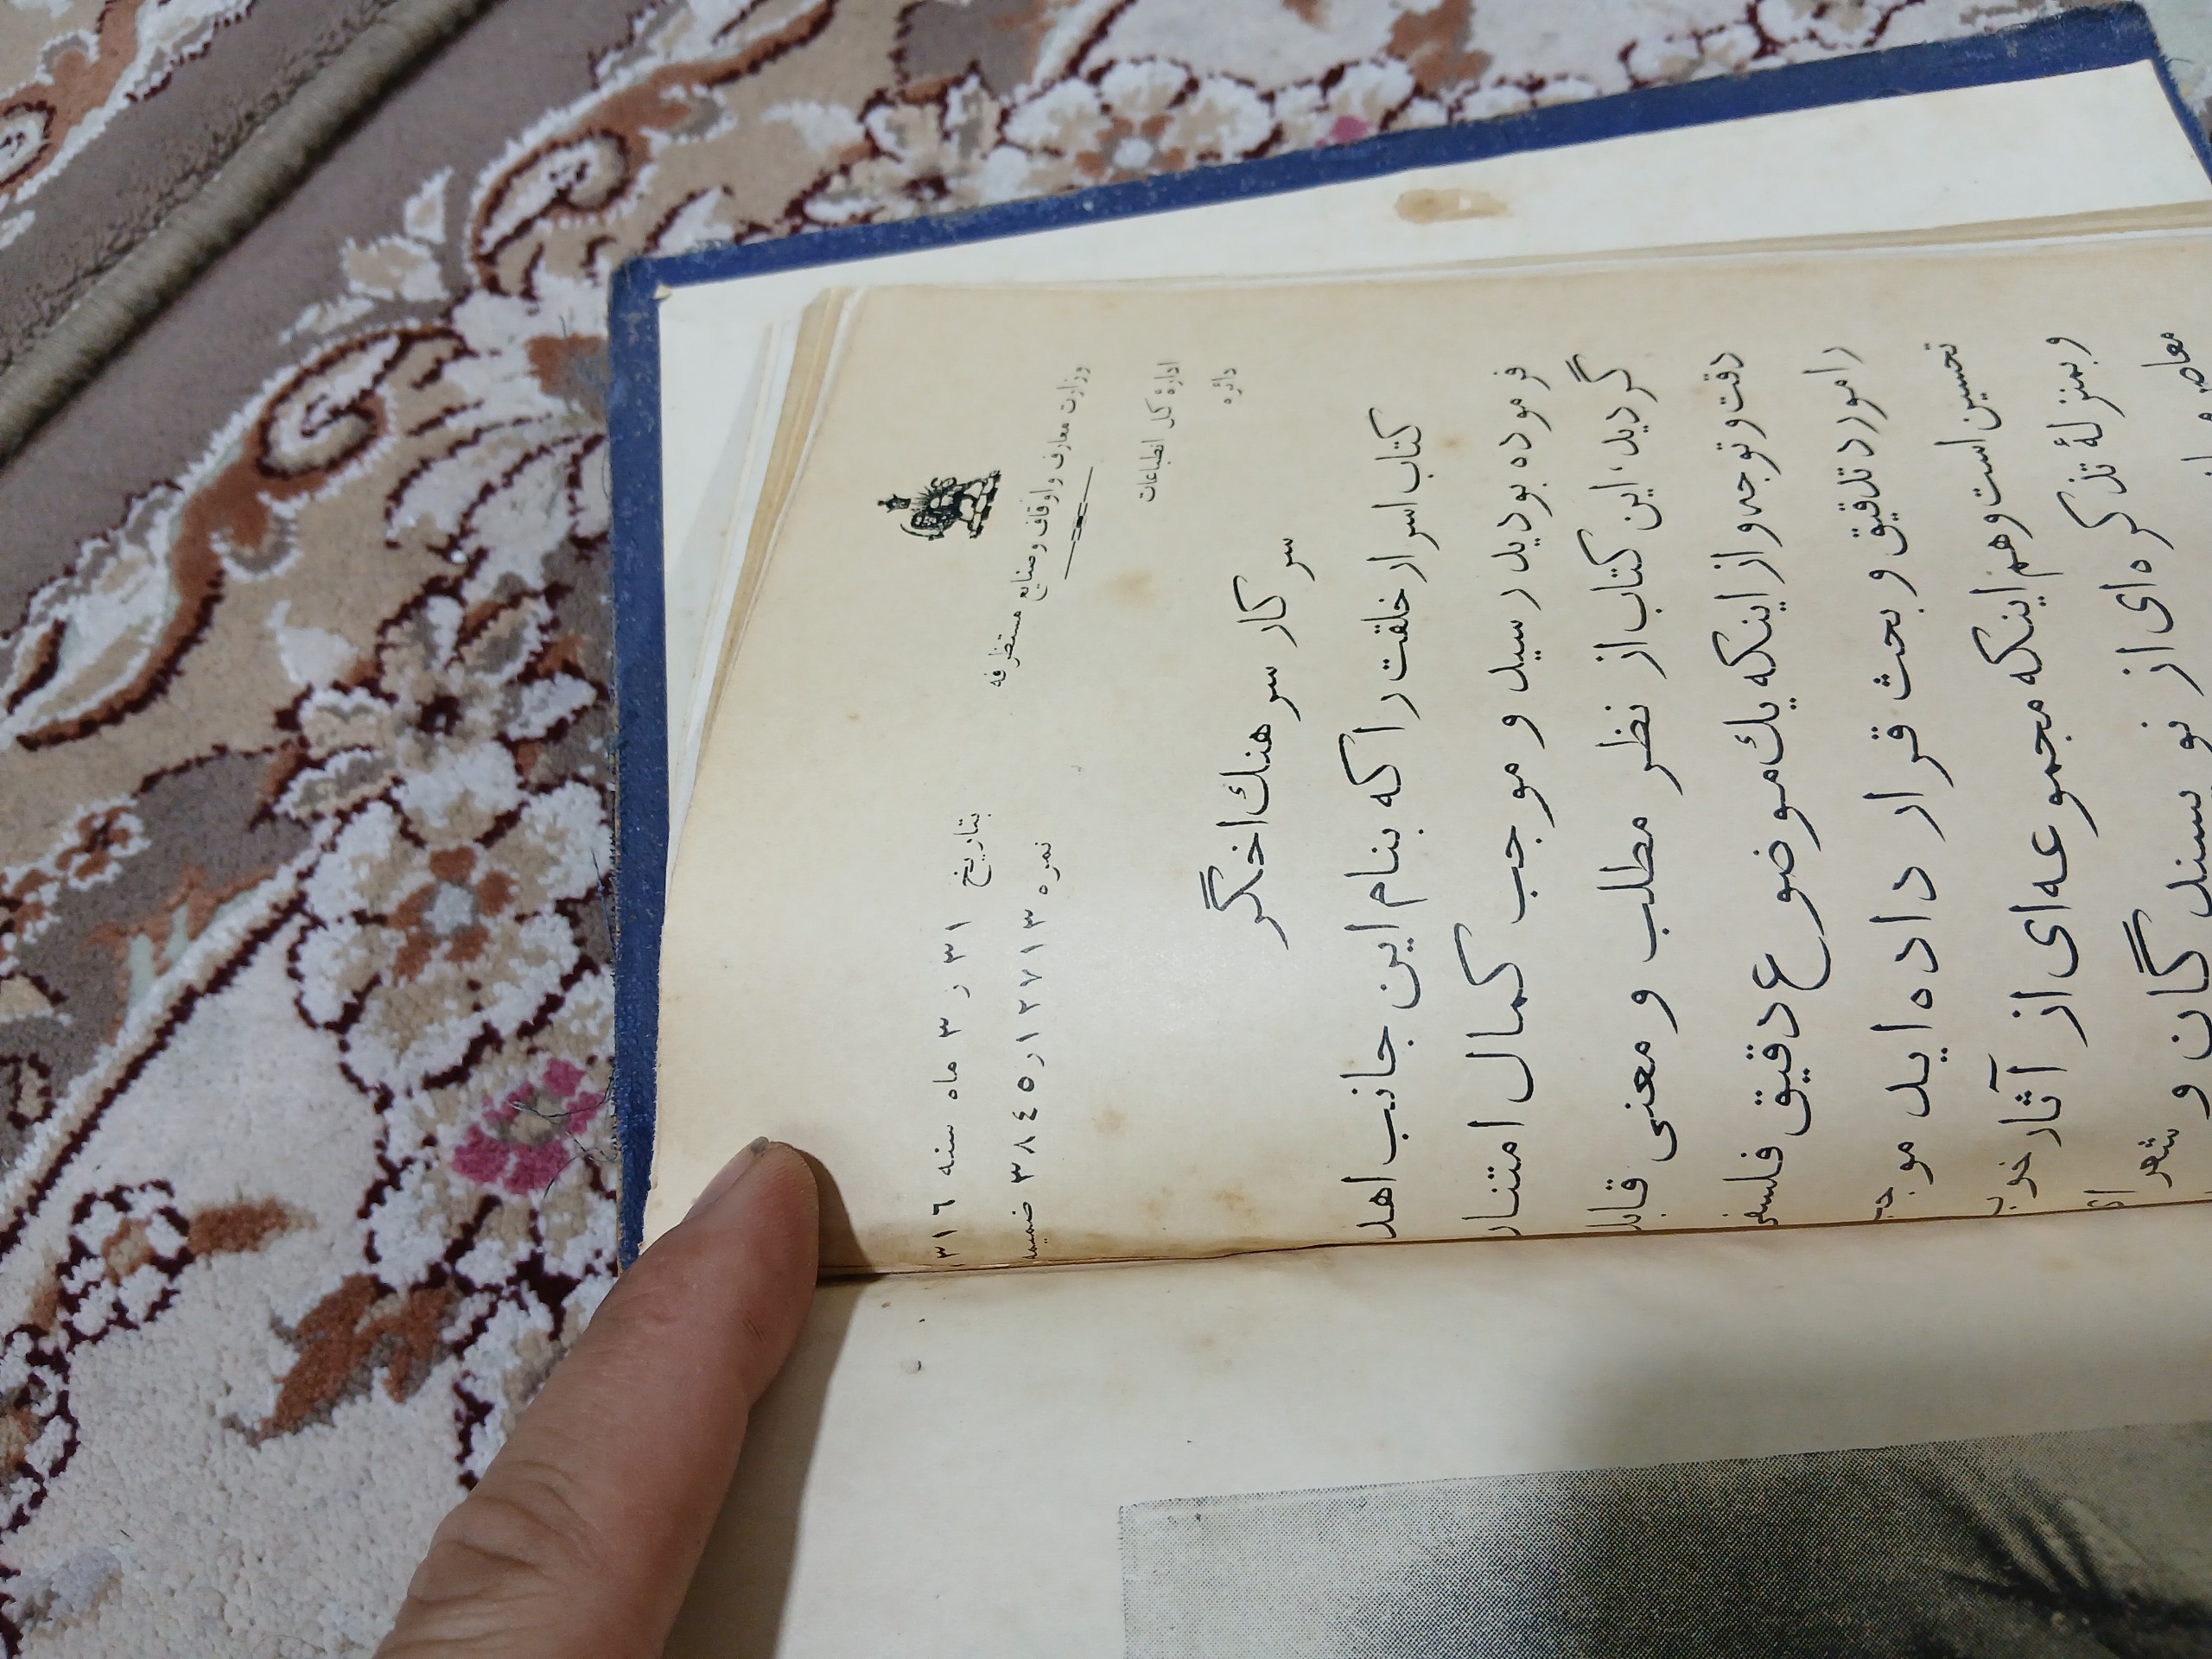 وزارت معارف و اوقاف و صنایع مستظرفه
ادارهٔ کل انطباعات
دائره
بتاریخ ۳۱ ر ۳ ماه سنه ۳۱۶
نمره ۳۸۴۵ر۱۲۷۱۳ ضمیمه
سرکار سرهنك اخگر
کتاب اسرار خلقت را که بنام این جانب اهدا
فرموده بودید رسید و موجب کمال امتنان
گردید، این کتاب از نظر مطلب و معنی قابل
دقت و توجه و از اینکه یك موضوع دقیق فلسفی
را مورد تدقیق و بحث قرار داده اید موجب
تحسین است و هم اینکه مجموعه‌ای از آثار خوب
و بمنزلهٔ تذکره‌ای از نویسندگان و شعرای
معاصر